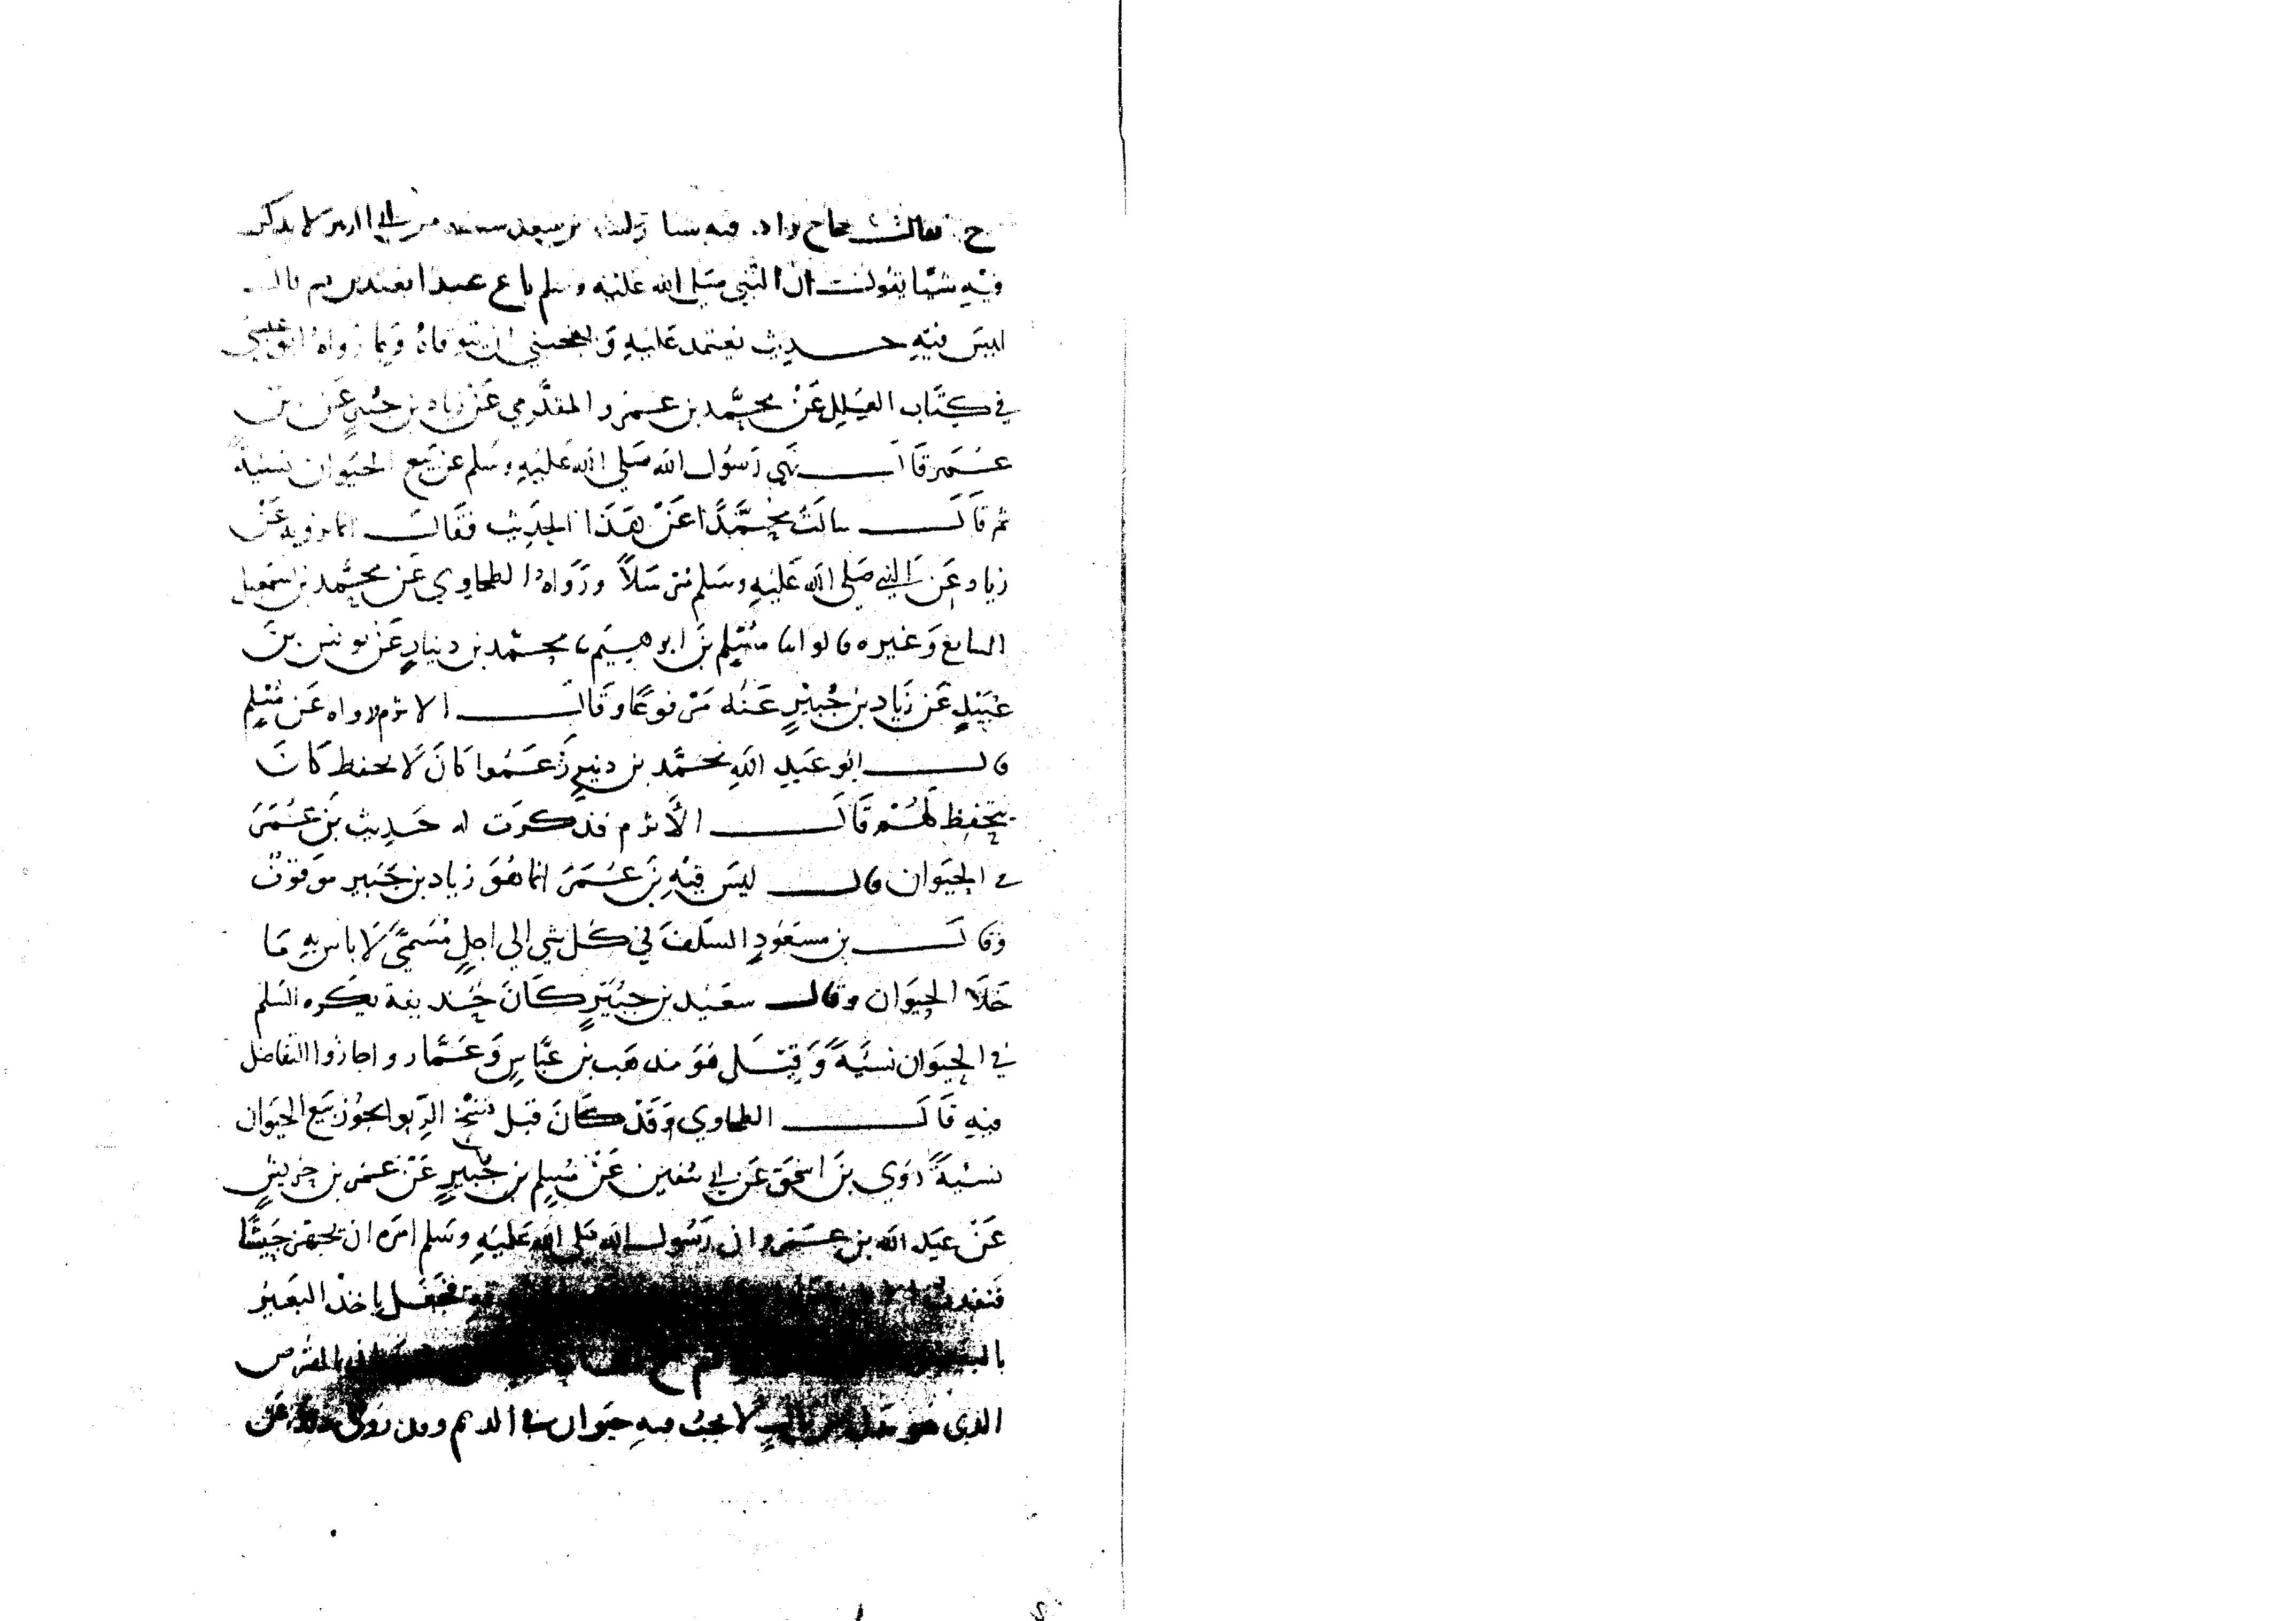 فقال حجاج زاد فيه نسا وليث بن سعد سمعه من ابي الزبير لا يذكر
فيه شيا يقول ان النبي صلي الله عليه وسلم باع عبدا بعبدين ثم قال
ليس فيه حديث نعتمد عليه ويعجبني ان نتوقاه وبما رواه الترمذي
في كتاب العلل عن محمد بن عمرو المقدمي عن زياد بن جبير عن بن
عمر قال نهي رسول الله صلي الله عليه وسلم عن بيع الحيوان نسية
ثم قال سالت محمدا عن هذا الحديث فقال انما نرويه عن
زياد عن النبي صلي الله عليه وسلم مرسلا ورواه الطحاوي عن محمد بن اسمعيل
الصايغ وغيره قالوا انا مسلم بن ابرهيم نا محمد بن دينار عن يونس بن
عبيد عن زياد بن جبير عنه مرفوعا وقال الاثرم رواه عن مسلم
قال ابو عبد الله محمد بن دينر زعموا كان لا يحفظ كان
يتحفظ لهم قال الاثرم فذكرت له حديث بن عمر
في الحيوان قال ليس فيه بن عمر انما هو زياد بن جبير موقوف
وقال بن مسعود السلف في كل شي الي اجل مسمي لا باس به ما
خلا الحيوان وقال سعيد بن جبير كان حذيفة يكره السلم
في الحيوان نسية وقيل هو مذهب بن عباس وعمار واجازوا التفاضل
فيه قال الطحاوي وقد كان قبل نسخ الربوا يجوز بيع الحيوان
نسية روي بن اسحق عن ابي سفين عن مسلم بن جبير عن عمر بن حريش
عن عبد الله بن عمرو ان رسول الله صلي الله عليه وسلم امره ان يجهز جيشا
فنفدت فجعل ياخذ البعير
القرض
الذي هو لا يجب فيه حيوان في الذمم وقد روي عن